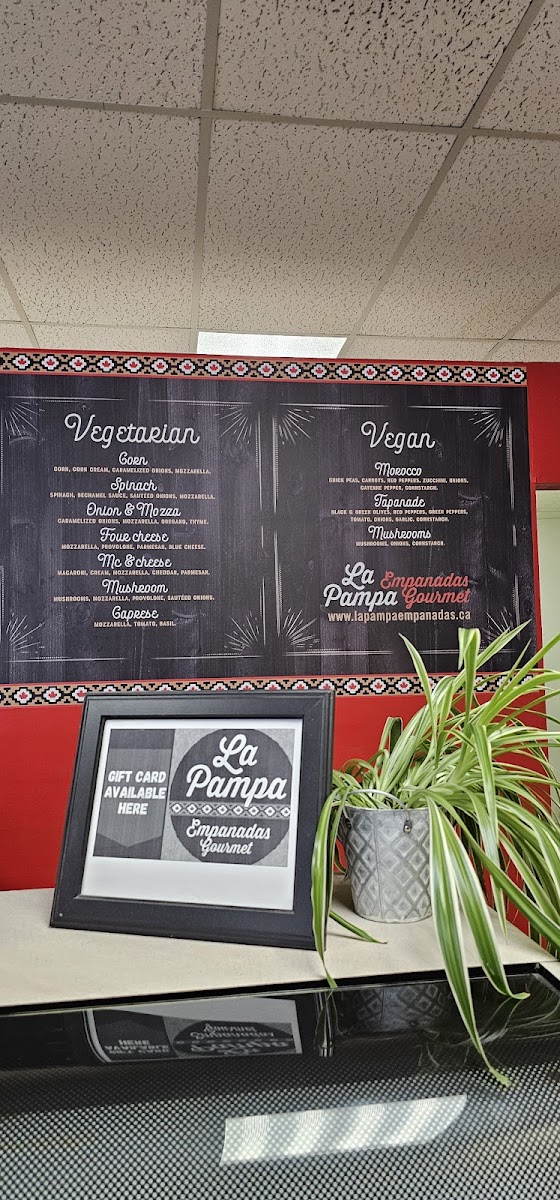 Vegetarian
Corn
CORN, CORN CREAM, CARAMELIZED ONIONS, MOZZARELLA.
Spinach
SPINAGH, BECHAMEL SAUCE, SAUTEED ONIONS, MOZZARELLA.
Onion & Mozza
CARAMELIZED ONIONS, MOZZARELLA, OREGANO, THYME.
Four cheese
MOZZARELLA, PROVOLONE, PARMESAN, BLUE CHEESE.
Mc & cheese
MACARONI, CREAM, MOZZARELLA, CHEDDAR, PARMESAN.
Mushroom
MUSHROOMS, MOZZARELLA, PROVOLONE, SAUTÉED ONIONS.
Caprese
MOZZARELLA, TOMATO, BASIL.
Vegan
Morocco
CHICK PEAS, CARROTS, RED PEPPERS, ZUCCHINI, ONIONS,
CAYENNE PEPPER, CORNSTARCH.
Tapanade
BLACK & GREEN OLIVES, RED PEPPERS, GREEN PEPPERS,
TOMATO, ONIONS, GARLIC, CORNSTARCH.
Mushrooms
MUSHROOMS, ONIONS, CORNSTARCH.
La Pampa
Empanadas Gourmet
www.lapampaempanadas.ca
GIFT CARD
AVAILABLE
HERE
La
Pampa
Empanadas
Gourmet